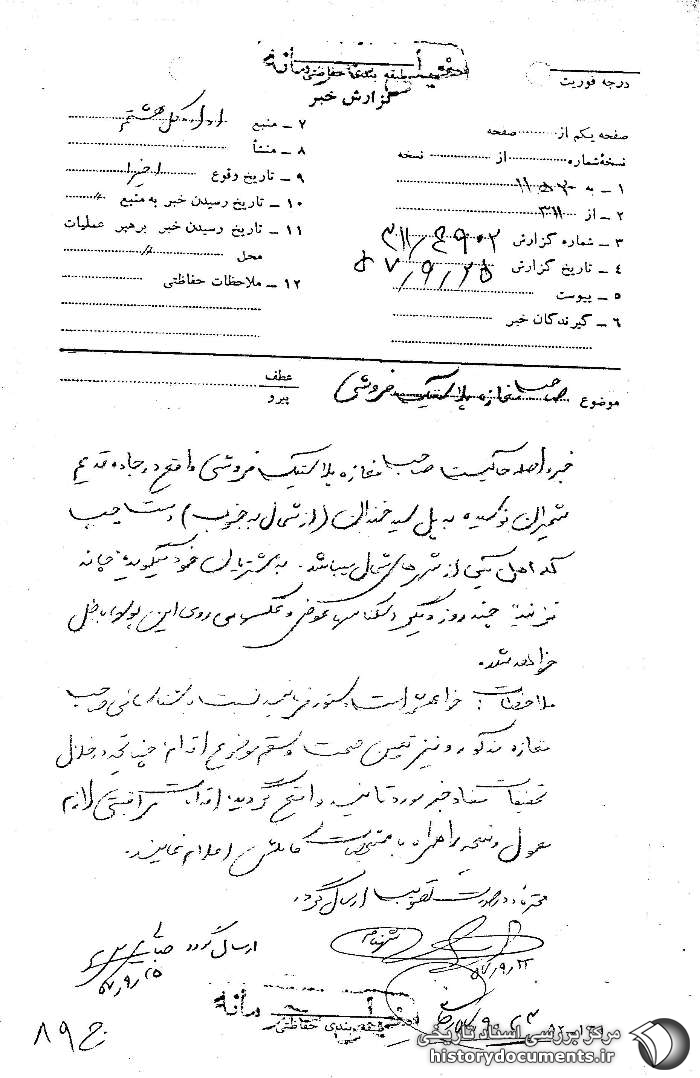 خیلی محرمانه
طبقه بندی حفاظتی
گزارش خبر
درجه فوریت
صفحه یکم از صفحه
نسخه شماره از نسخه
۱ ـ به ۵۲۰ ۱۱
۲ ـ از ۳۱۱
۳ ـ شماره گزارش ۳۱۱/۴۹۰۲
۴ ـ تاریخ گزارش ۵۷/۹/۲۵
۵ ـ پیوست
۶ ـ گیرندگان خبر
۷ ـ منبع اداره کل هشتم
۸ ـ منشأ
۹ ـ تاریخ وقوع اخیرا
۱۰ ـ تاریخ رسیدن خبر به منبع "
۱۱ ـ تاریخ رسیدن خبر برهبر عملیات
محل "
۱۲ ـ ملاحظات حفاظتی
موضوع صاحب مغازه پلاستیک فروشی
عطف
پیرو
خبر واصله حاکیست صاحب مغازه پلاستیک فروشی واقع در جاده قدیم
شمیران نرسیده به پل سید خندان (از شمال به جنوب) دست چپ
که اهل یکی از شهرهای شمال میباشد. به مشتریان خود میگوید: چانه
نزنید چند روز دیگر اسکناس عوض و عکسهای روی این پولها باطل
خواهد شد.
ملاحظات: خواهشمند است دستور فرمایید نسبت به شناسائی صاحب
مغازه مذکور و نیز تعیین صحت و سقم موضوع اقدام، چنانچه در خلال
تحقیقات مفاد خبر مورد تایید واقع گردید، اقدامات مراقبتی لازم
معمول و نتیجه را همراه با مشخصات کاملش اعلام نمایند.
محترمانه در صورت تصویب ارسال گردد.
ارسال گردد
۵۷/۹/۲۵
۵۷/۹/۲۲
خیلی محرمانه
طبقه بندی حفاظتی
ج ۸۹
مرکز بررسی اسناد تاریخی
historydocuments.ir